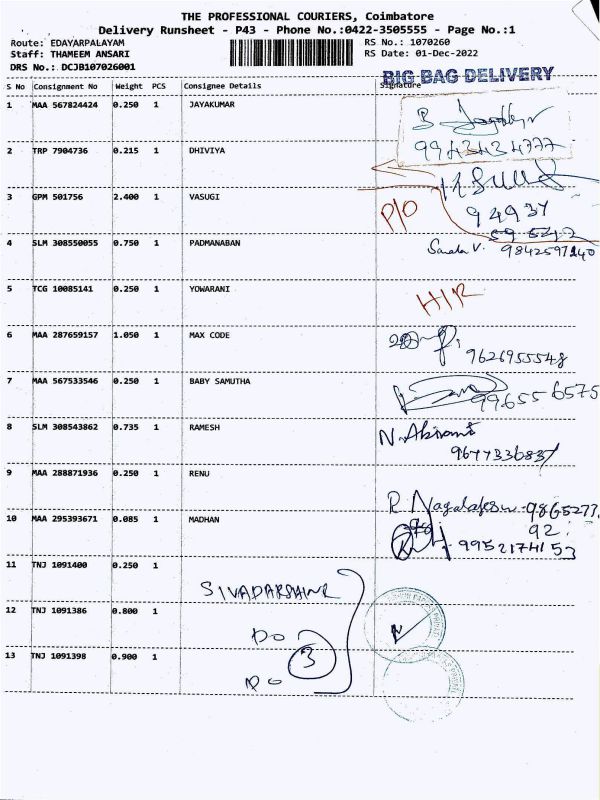 THE PROFESSIONAL COURIERS, Coimbatore
Delivery Runsheet - P43 - Phone No.:0422-3505555 - Page No.:1
Route: EDAYARPALAYAM RS No.: 1070260
Staff: THAMEEM ANSARI RS Date: 01-Dec-2022
DRS No.: DCJB107026001
BIG BAG DELIVERY
S No Consignment No Weight PCS Consignee Details Signature
1 MAA 567824424 0.250 1 JAYAKUMAR
9943434777
2 TRP 7904736 0.215 1 DHIVIYA
3 GPM 501756 2.400 1 VASUGI P/O
94937
59 5242
4 SLM 308550055 0.750 1 PADMANABAN Sarala V. 9842597240
5 TCG 10085141 0.250 1 YOWARANI
H/R
6 MAA 287659157 1.050 1 MAX CODE
9626955548
7 MAA 567533546 0.250 1 BABY SAMUTHA
996556575
8 SLM 308543862 0.735 1 RAMESH N. Abirami
9677336837
9 MAA 288871936 0.250 1 RENU
R 9865277
92
10 MAA 295393671 0.085 1 MADHAN
9952174153
11 TNJ 1091400 0.250 1
SIVADARSHINI
12 TNJ 1091386 0.800 1
DO
3
13 TNJ 1091398 0.900 1
DO